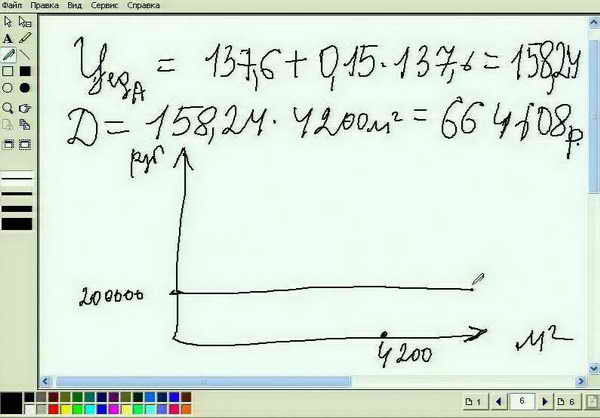 Файл Правка Вид Сервис Справка
Ц ед А = 137,6 + 0,15 · 137,6 = 158,24
Д = 158,24 · 4200 м² = 664608 р.
руб
200000
4200
м²
1
6
6